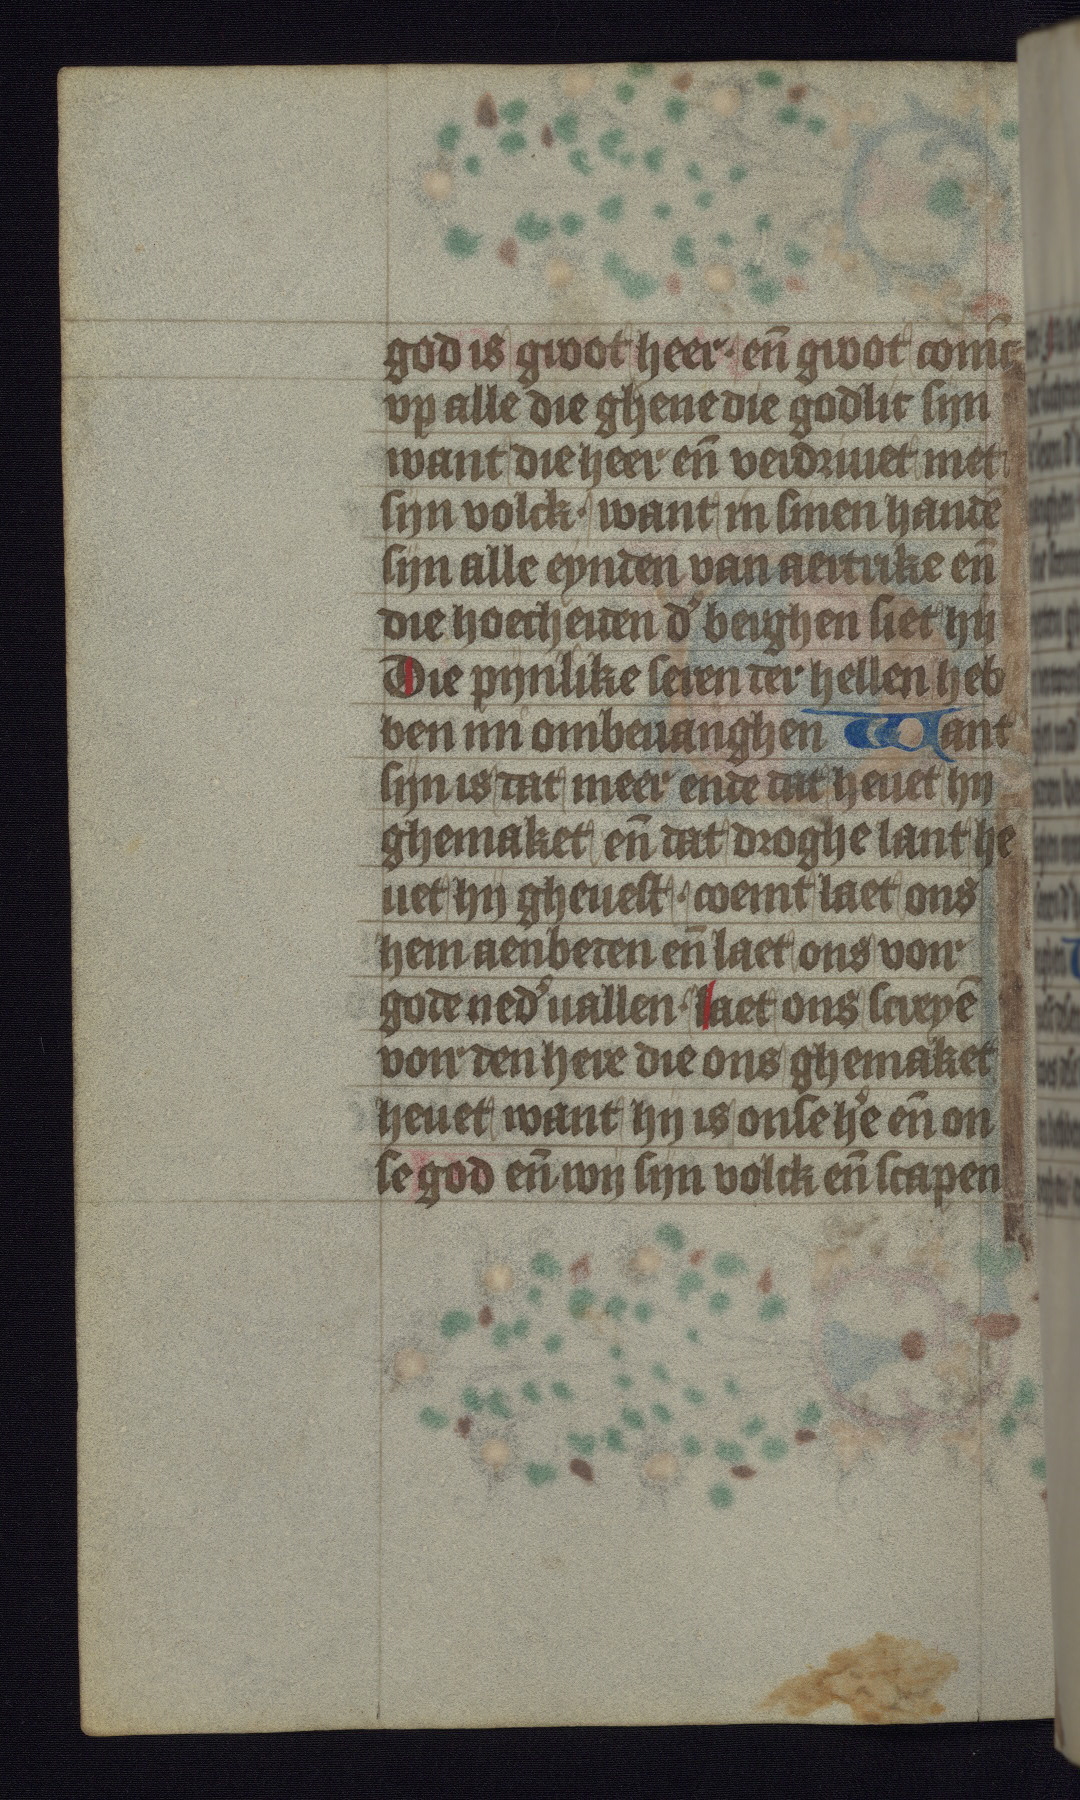 god is groot heer· en̄ groot conīc
vp alle die ghene die godlic sijn
want die heer en̄ verdriuet niet
sijn volck· want in sinen hande
sijn alle eynden van aertrike en̄
die hoecheiten d' berghen siet hij
Die pijnlike seren der hellen heb
ben mi ombeuanghen Want
sijn is dat meer ende dat heuet hij
ghemaket en̄ dat droghe lant he
uet hij gheuest· coemt laet ons
hem aenbeten en̄ laet ons voir
gode ned'uallen· laet ons screyē
voir den here die ons ghemaket
heuet want hij is onse h'e en̄ on
se god en̄ wij sijn volck en̄ scapen